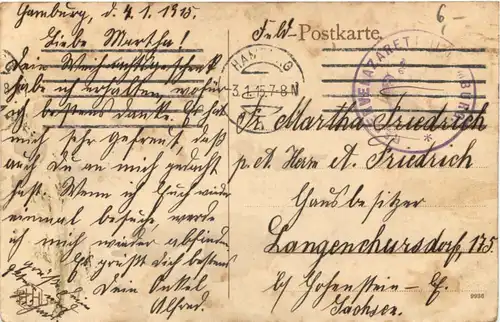 Hamburg, d. 4.1.1915.
Liebe Martha!
Dein Weihnachtsgeschenk
habe ich erhalten, wofür
ich bestens danke. Es hat
mich sehr gefreut, daß
auch Du an mich gedacht
hast. Wenn ich Euch wieder
einmal besuche, werde
ich mich wieder abfinden.
Es grüßt Dich bestens
Dein Onkel
Alfred.
6,-
Feld-Postkarte.
HAMBURG
3.1.15.7-8N
RESERVELAZARETT HAMBURG
Frl. Martha Friedrich
p. A. Herrn A. Friedrich
Hausbesitzer
Langenchursdorf, 175
b/ Hohenstein-E.
Sachsen.
9956